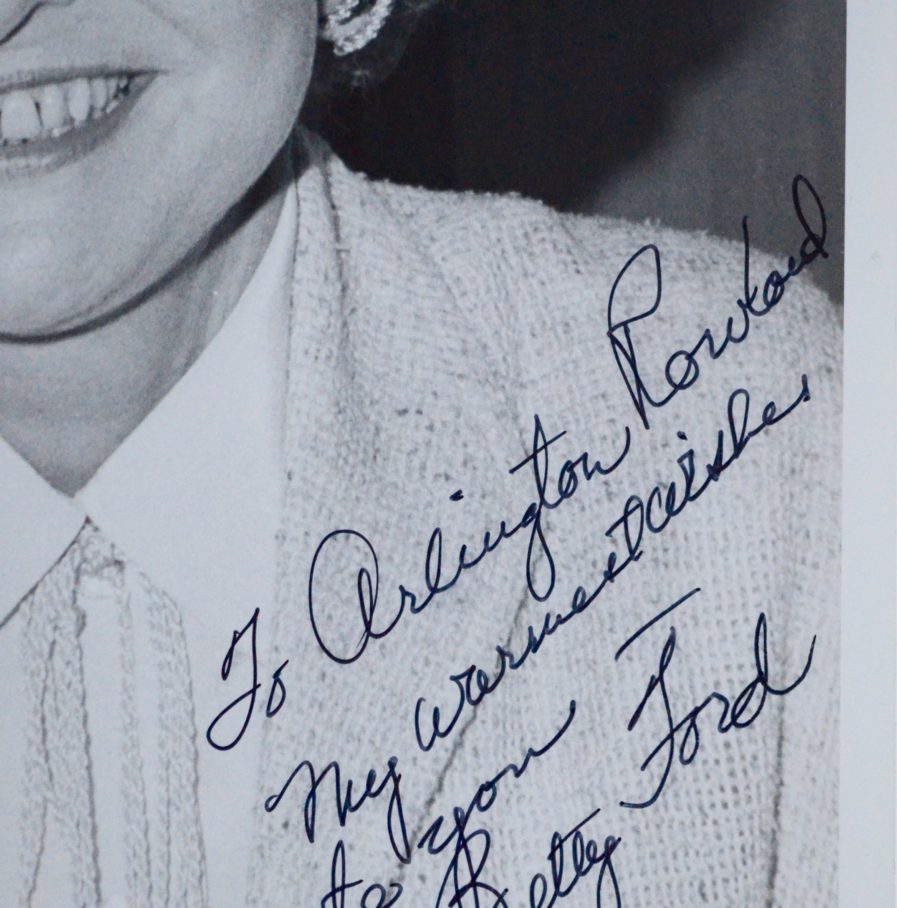 To Arlington Rowland
My warmest wishes
to you
Betty Ford